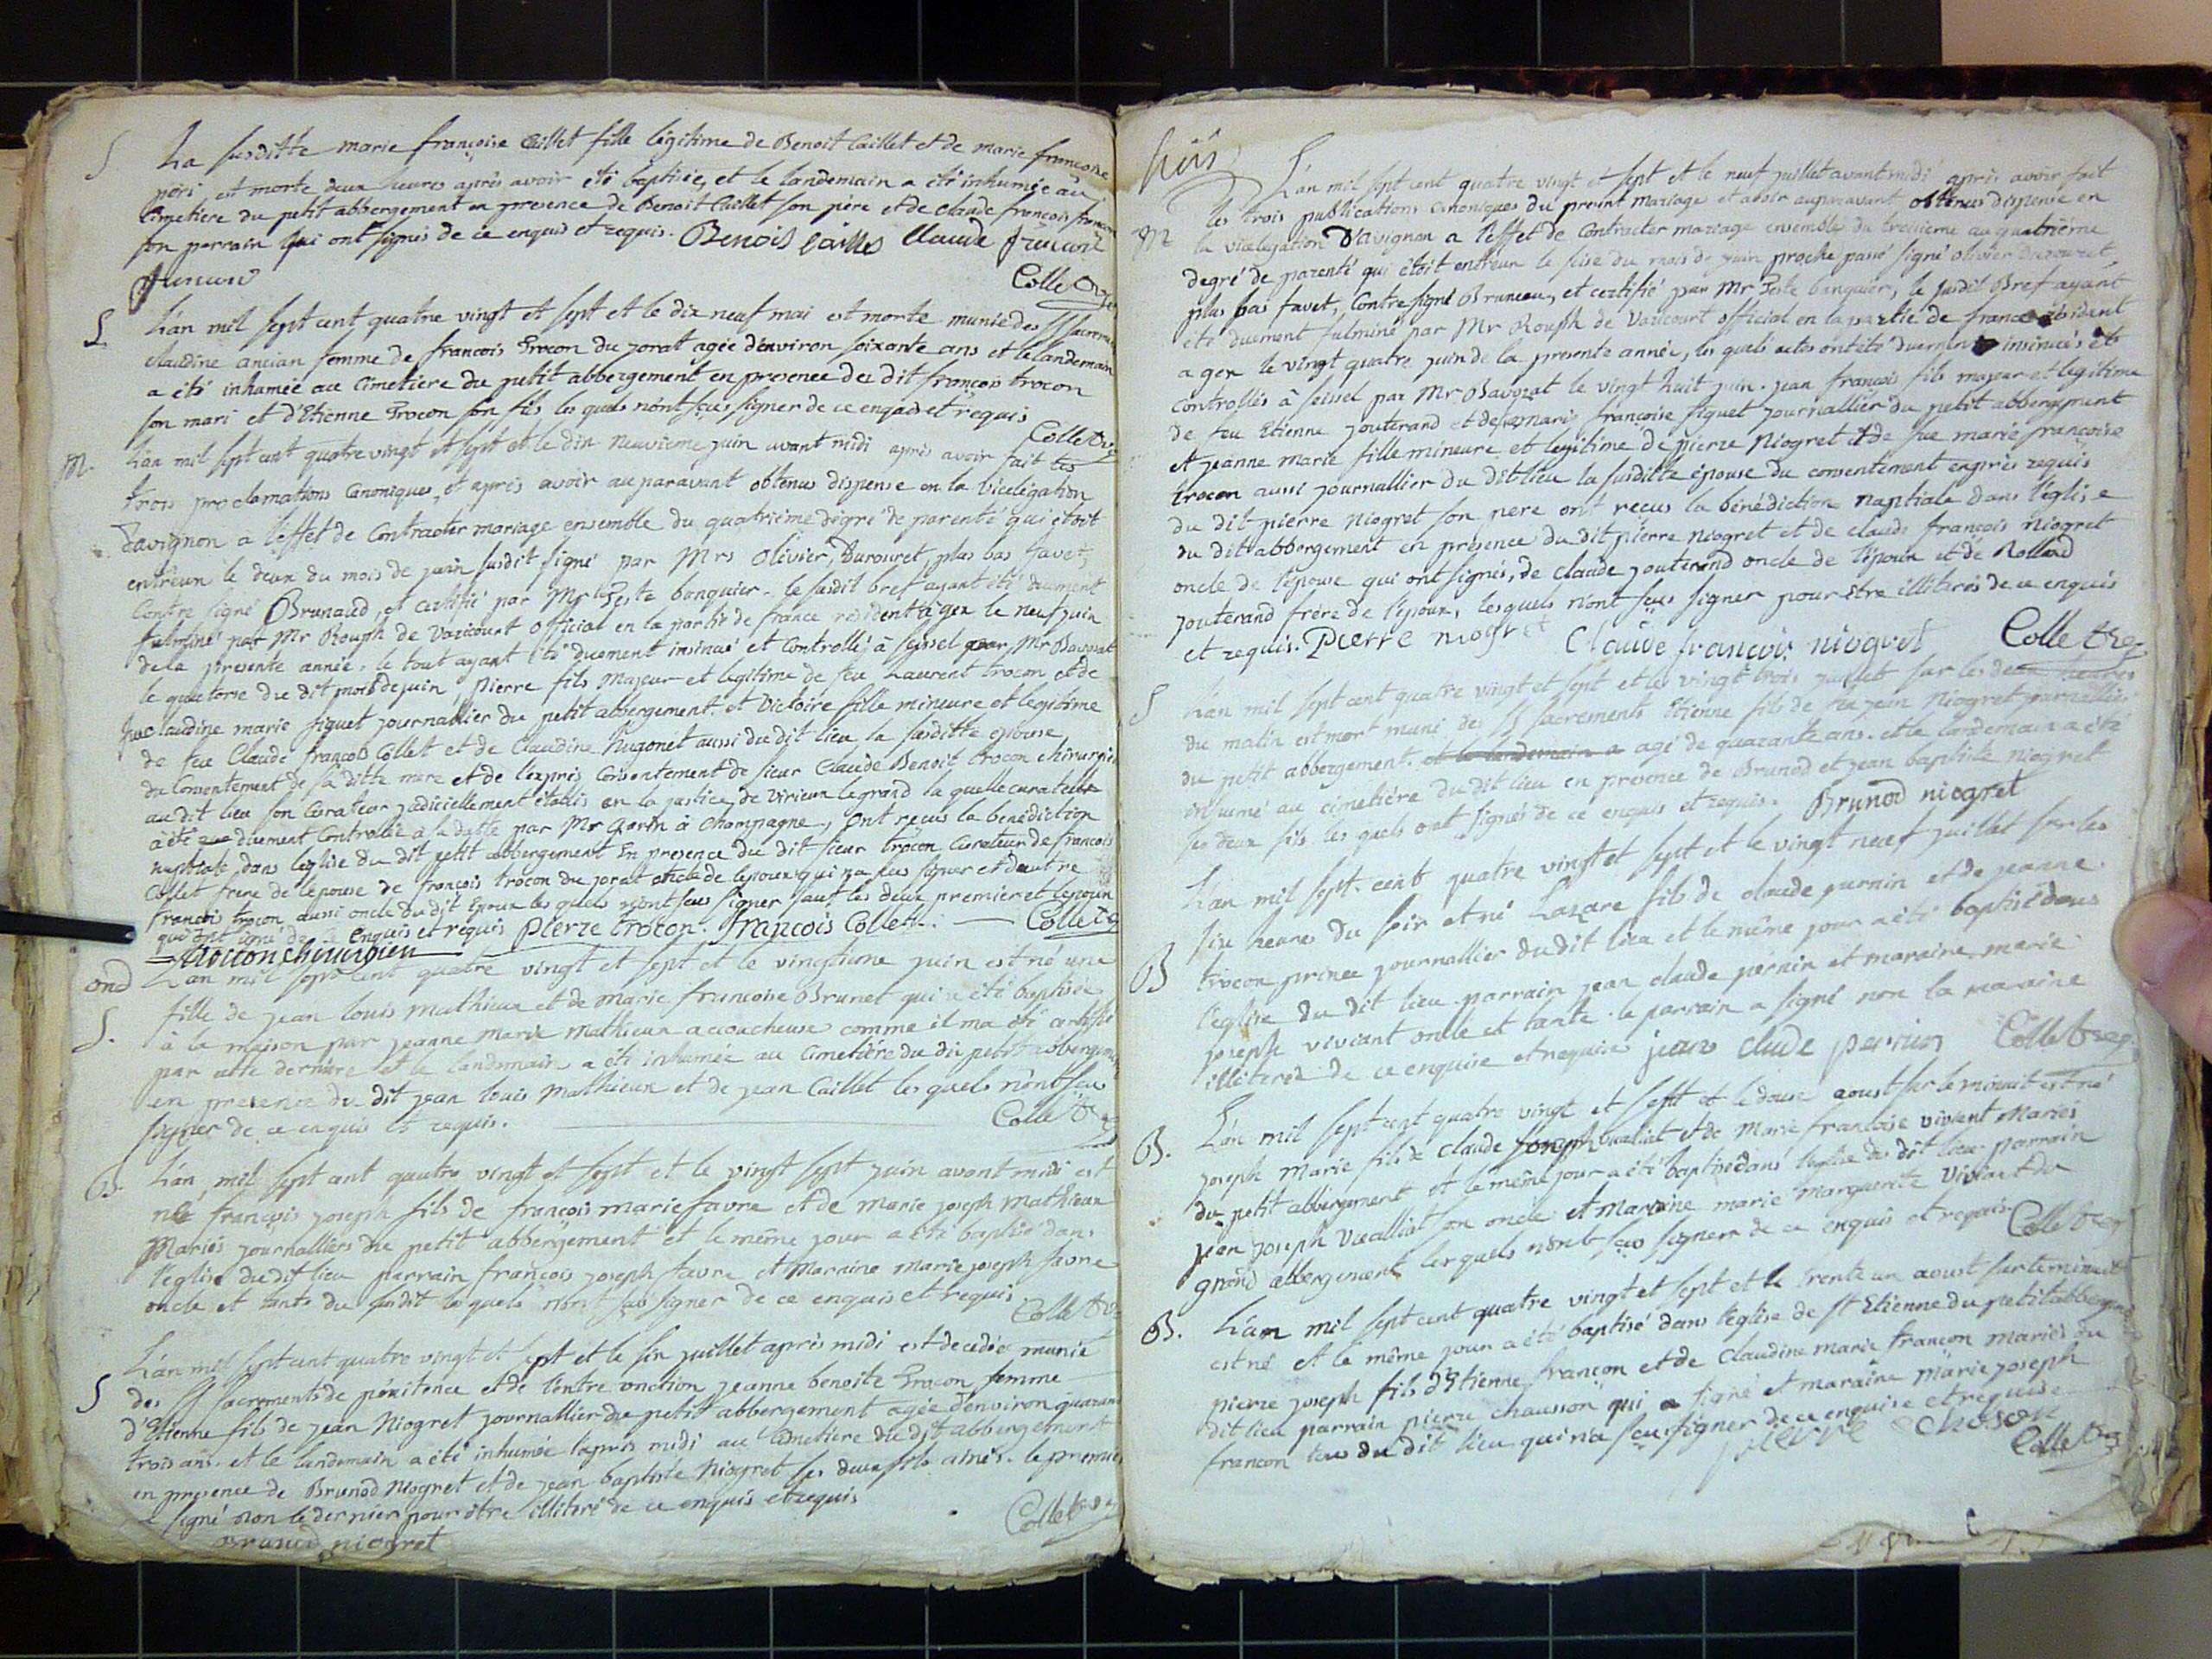 S La susditte marie françoise Caillet fille légitime de Benoit Caillet et de marie francoise
péri est morte deux heures après avoir été baptisée, et le landemain a été inhumée au
Cimetiere du petit abbergement en presence de Benoit Caillet son père et de claude françois françon
son parrain qui ont signés de ce enquis et requis. Benoit Caillet Claude françois
françon Collet
S L'an mil sept cent quatre vingt et sept et le dix neuf mai est morte munie des SS sacrements
claudine ancian femme de francois Trocon du jorat agée d'environ soixante ans et le landemain
a été inhumée au Cimetiere du petit abbergement en presence du dit françois trocon
son mari et d'Etienne Trocon son fils les quels n'ont sçus signer de ce enquis et requis
Collet
M. L'an mil sept cent quatre vingt et sept et le dix neuvieme juin avant midi après avoir fait les
trois proclamations Canoniques, et après avoir auparavant obtenus dispense en la Vicelégation
Davignon a l'effet de Contracter mariage ensemble du quatrième dégré de parenté qui étoit
entr'eux le deux du mois de juin susdit signé par Mrs Olivier, Durouret plus bas favet,
Contre signé Brunaud, et certifié par Mr Teste banquier. le susdit bref ayant été duement
fulminé par Mr Rouph de Varicourt Official en la partie de france résident à gex le neuf juin
de la presente année. le tout ayant été duement insinué et Controllé à seissel par Mr Bavozat
le quatorse du dit mois de juin, Pierre fils Majeur et legitime de feu Laurent trocon et de
feue Claudine marie siguet journallier du petit abbergement. et Victoire fille mineure et légitime
de feu Claude françois Collet et de Claudine hugonet aussi du dit lieu la susditte épouse
du Consentement de sa ditte mere et de l'exprès Consentement de sieur Claude Benoit trocon chirurgien
au dit lieu son Curateur judiciellement établis en la justice de Virieux le grand la quelle curatelle
a été duement Controllée à sa datte par Mr Gorin à Champagne, Ont reçus la benediction
nuptiale, dans l'eglise du dit petit abbergement En presence du dit sieur trocon Curateur de françois
Collet frere de l'épouse de françois trocon du jorat oncle de l'epoux qui n'a sçus signer et d'autre
françois trocon aussi oncle du dit Epoux les quels n'ont sçus signer sauf les deux premier et l'epoux
qui ont signé de ce enquis et requis Pierre trocon. François Collet. Collet
Trocon chirurgien
ond
S. L'an mil sept cent quatre vingt et sept et le vingtieme juin est né une
fille de jean louis mathieux et de marie francoise Brunet qui a été baptisée
à la maison par jeanne marie mathieux accoucheuse comme il m'a été certifié
par cette derniere et le landemain a été inhumée au Cimetiére du dit petit abbergement
en presence du dit jean louis mathieux et de jean Caillet les quels n'ont sçu
signer de ce enquis et requis. Collet
B. L'an mil sept cent quatre vingt et sept et le vingt sept juin avant midi est
né françois joseph fils de françois marie favre et de marie joseph mathieux
Mariés journalliers du petit abbergement et le même jour a été baptisé dans
l'église du dit lieu parrain françois joseph favre et Maraine marie joseph favre
oncle et tante du susdit les quels n'ont sçus signer de ce enquis et requis
Collet
S L'an mil sept cent quatre vingt et sept et le six juillet après midi est decedée munie
des SS sacrements de pénitence et de l'extre onction jeanne benoite Trocon femme
d'Etienne fils de jean Niogret journallier du petit abbergement agée d'environ quarante
trois ans. et le landemain a été inhumée l'après midi au Cimetiere du dit abbergement
en presence de Brunod Niogret et de jean baptiste Niogret ses deux fils ainés. le premier
a signé non le dernier pour être illitéré de ce enquis et requis
Brunod niogret Collet
M L'an mil sept cent quatre vingt et sept et le neuf juillet avant midi après avoir fait
les trois publications Canoniques du present Mariage et avoir auparavant obtenus dispense en
la vicelegation D'avignon a l'effet de Contracter mariage ensemble du troisieme au quatriéme
degré de parenté qui étoit entr'eux le seise du mois de juin proche passé signé olivier Durouret,
plus bas favet, Contre signé Bruneau, et certifié par Mr Teste banquier, le susdit Bref ayant
été duement fulminé par Mr Rouph de Varicourt official en la partie de france résident
a gex le vingt quatre juin de la presente année, les quels actes ont été duement insinués et
Controllés à seissel par Mr Bavozat le vingt huit juin. jean françois fils majeur et legitime
de feu Etienne jouterand et de marie françoise siguet journallier du petit abbergement
et jeanne marie fille mineure et legitime de pierre Niogret et de feue marie françoise
trocon aussi journallier du dit lieu la susditte épouse du consentement exprès requis
du dit pierre niogret son pere ont reçus la bénédiction nuptiale dans l'église
du dit abbergement en presence du dit pierre niogret et de claude françois niogret
oncle de l'épouse qui ont signés, de claude jouterand oncle de l'époux et de Rolland
jouterand frère de l'époux, lesquels n'ont sçus signer pour être illitérés de ce enquis
et requis. Pierre niogret Claude françois niogret Collet
S L'an mil sept cent quatre vingt et sept et le vingt trois juillet sur les deux heures
du matin est mort muni des SS sacrements Etienne fils de feu jean Niogret journallier
du petit abbergement. et le landemain a agé de quarante ans. et le landemain a été
inhumé au cimetiére du dit lieu en presence de Brunod et jean baptiste Niogret
ses deux fils les quels ont signés de ce enquis et requis. Brunod niogret
B L'an mil sept cent quatre vingt et sept et le vingt neuf juillet sur les
six heures du soir est né Lazare fils de claude pernin et de jeanne
trocon prince journallier du dit lieu et le même jour a été baptisé dans
l'eglise du dit lieu. parrain jean claude pernin et maraine marie
joseph viviant oncle et tante. le parrain a signé non la maraine
illiterée de ce enquise et requise jean clude pernin Collet
B. L'an mil sept cent quatre vingt et sept et le douse aoust sur le minuit est né
joseph Marie fils de claude joseph vuailliat et de Marie francoise viviant Mariés
du petit abbergement et le même jour a été baptisé dans l'eglise du dit lieu parrain
jean joseph Vuailliat son oncle et Maraine marie Marguerite Viviant du
grand abbergement lesquels n'ont sçus signer de ce enquis et requis Collet
B. L'an mil sept cent quatre vingt et sept et le trente un aoust sur le minuit
est né et le même jour a été baptisé dans l'église de St Etienne du petit abbergement
pierre joseph fils d'Etienne françon et de claudine marie françon mariés du
dit lieu parrain pierre chausson qui a signé et maraine marie joseph
francon du dit lieu qui n'a sçu signer de ce enquise et requise
pierre choson Collet